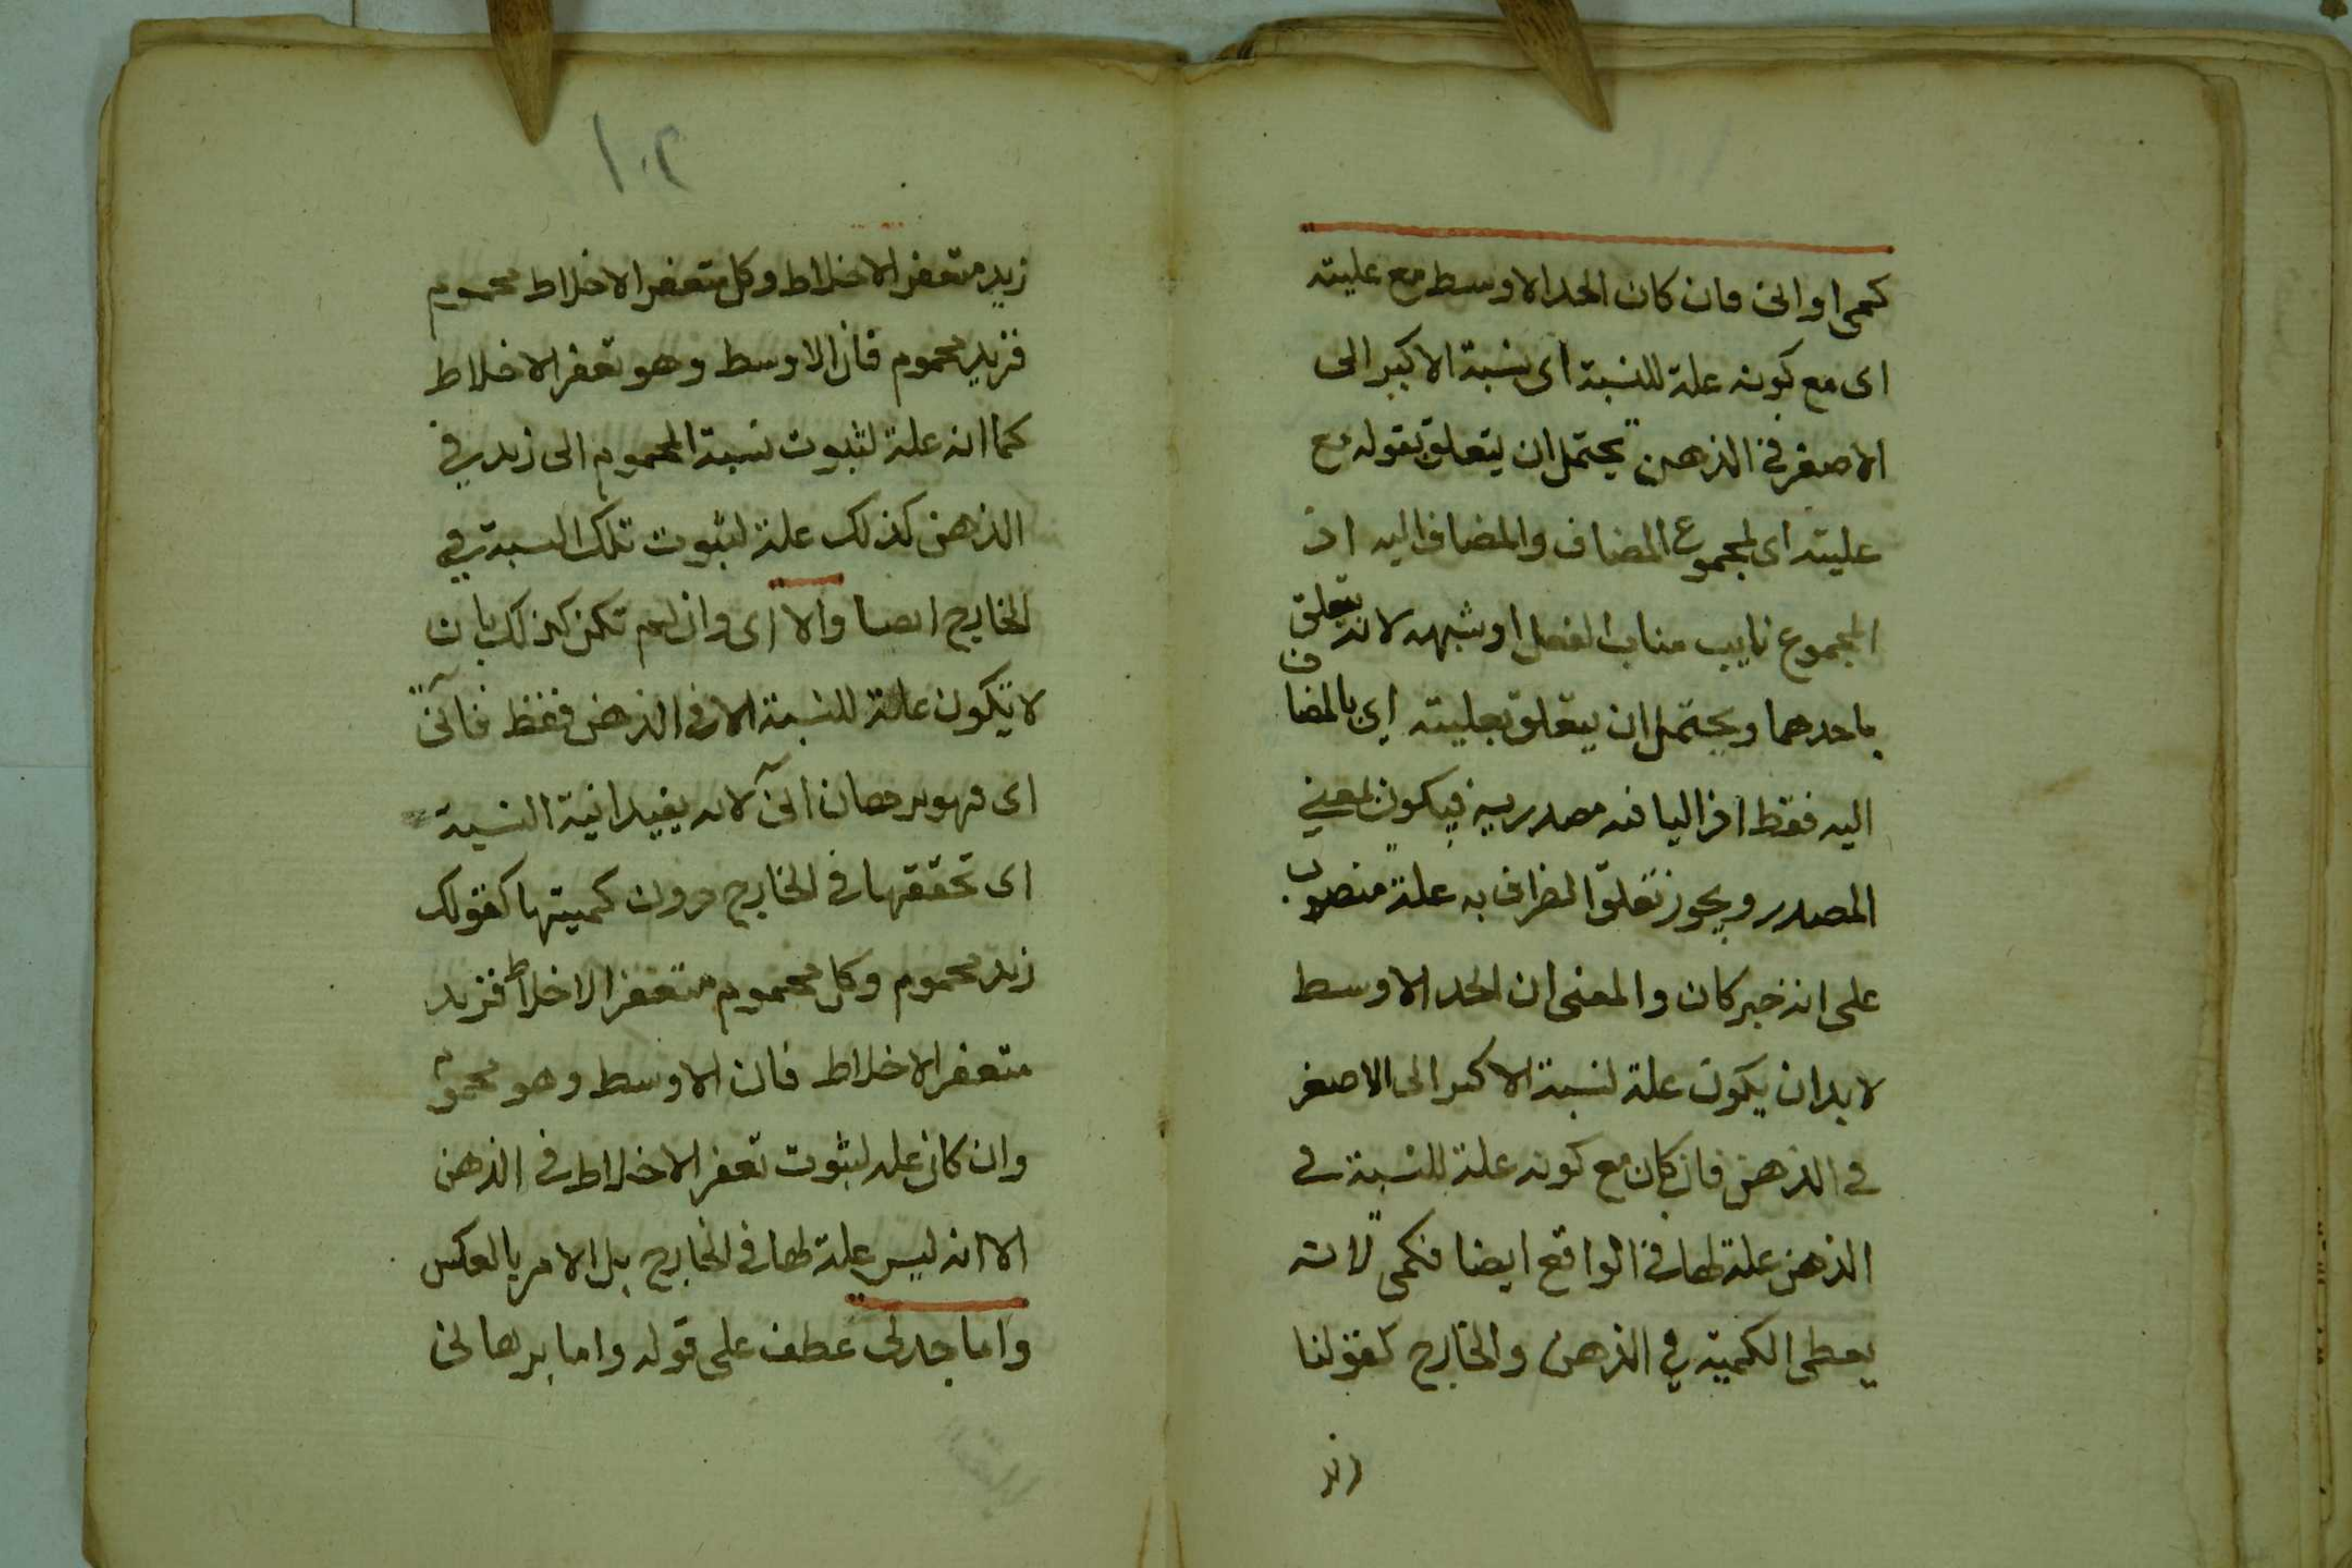 كمى او انى فان كان الحد الاوسط مع عليته
اى مع كونه علة للنسبة اى نسبة الاكبر الى
الاصغر فى الذهن يحتمل ان يتعلق بقوله مع
عليته اى لمجموع المضاف والمضاف اليه اذ
المجموع نايب مناب الفعل او شبهه لانه يتعلق
باحدهما ويحتمل ان يتعلق بعليته اى بالمضاف
اليه فقط اذ اليا فيه مصدرية فيكون بمعنى
المصدر ويجوز تعلق الظرف به علة منصوب
على انه خبر كان والمعنى ان الحد الاوسط
لا بد ان يكون علة لنسبة الاكبر الى الاصغر
فى الذهن فان كان مع كونه علة للنسبة فى
الذهن علة لها فى الواقع ايضا فكمى لانه
يعطى الكمية فى الذهن والخارج كقولنا
زيد
١٠٢
زيد متعفن الاخلاط وكل متعفن الاخلاط محموم
فزيد محموم فان الاوسط وهو تعفن الاخلاط
كما انه علة لثبوت نسبة المحموم الى زيد فى
الذهن كذلك علة لثبوت تلك النسبة فى
الخارج ايضا والا اى وان لم تكن كذلك بان
لا يكون علة للنسبة الا فى الذهن فقط فآنى
اى فهو برهان انى لانه يفيد انية النسبة
اى تحققها فى الخارج دون كميتها كقولك
زيد محموم وكل محموم متعفن الاخلاط فزيد
متعفن الاخلاط فان الاوسط وهو محموم
وان كان علة لثبوت تعفن الاخلاط فى الذهن
الا انه ليس علة لها فى الخارج بل الامر بالعكس
واما جدلى عطف على قوله واما برهانى